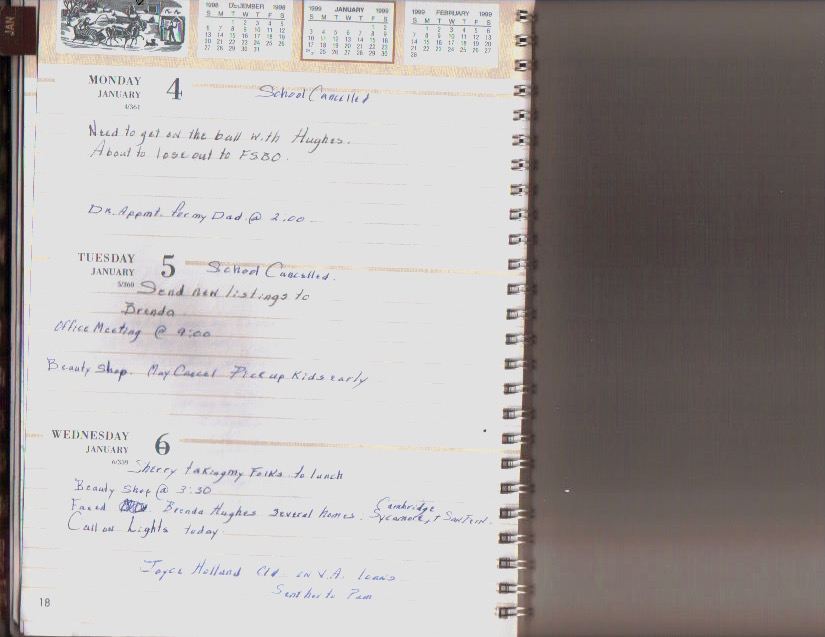 JAN
1998 DECEMBER 1998
S M T W T F S
1 2 3 4 5
6 7 8 9 10 11 12
13 14 15 16 17 18 19
20 21 22 23 24 25 26
27 28 29 30 31
1999 JANUARY 1999
S M T W T F S
1 2
3 4 5 6 7 8 9
10 11 12 13 14 15 16
17 18 19 20 21 22 23
25 26 27 28 29 30
1999 FEBRUARY 1999
S M T W T F S
1 2 3 4 5 6
7 8 9 10 11 12 13
14 15 16 17 18 19 20
21 22 23 24 25 26 27
28
MONDAY 4 School Cancelled
JANUARY
4/361
Need to get on the ball with Hughes.
About to lose out to FSBO.
Dr. Appmt. for my Dad @ 2:00
TUESDAY 5 School Cancelled.
JANUARY
5/360 Send new listings to
Brenda
Office Meeting @ 9:00
Beauty Shop. May Cancel Pick up Kids early
WEDNESDAY 6
JANUARY
6/359 Sherry taking my Folks to lunch
Beauty Shop @ 3:30
Faxed Brenda Hughes several homes: Cambridge
Sycamore, +
Call on Lights today.
Joyce Holland Cld. on V.A. loans
Sent her to Pam
18